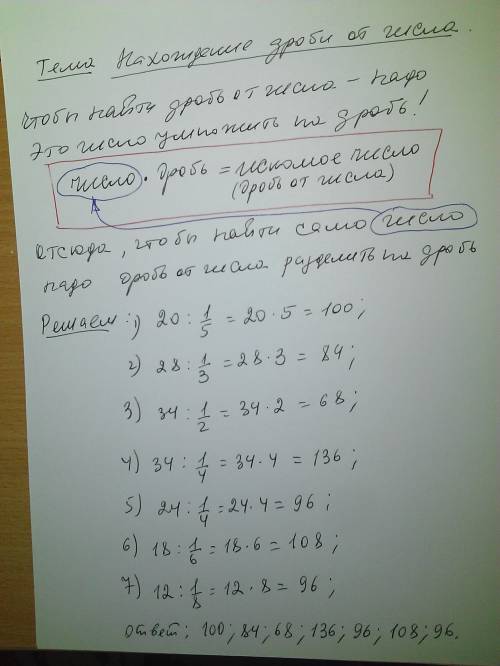 Тема Нахождение дроби от числа.
Чтобы найти дробь от числа – надо
это число умножить на дробь!
число · дробь = искомое число
(дробь от числа)
отсюда, чтобы найти само число
надо дробь от числа разделить на дробь
Решаем: 1) 20 : 1/5 = 20 · 5 = 100;
2) 28 : 1/3 = 28 · 3 = 84;
3) 34 : 1/2 = 34 · 2 = 68;
4) 34 : 1/4 = 34 · 4 = 136;
5) 24 : 1/4 = 24 · 4 = 96;
6) 18 : 1/6 = 18 · 6 = 108;
7) 12 : 1/8 = 12 · 8 = 96;
ответ: 100; 84; 68; 136; 96; 108; 96.